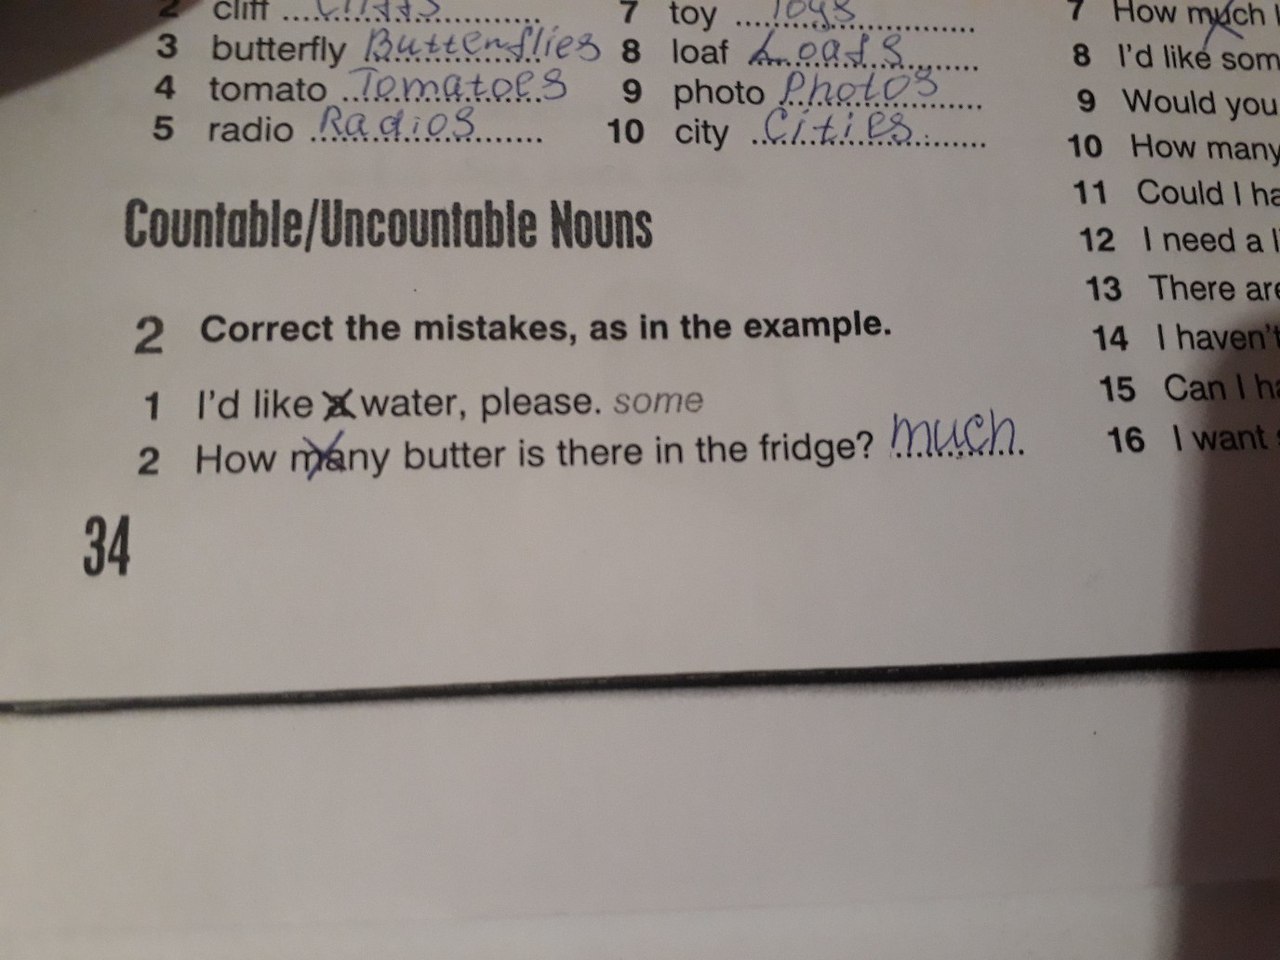 2 cliff Cliffs
3 butterfly Butterflies
4 tomato Tomatoes
5 radio Radios
7 toy Toys
8 loaf Loafs
9 photo Photos
10 city Cities
Countable/Uncountable Nouns
2 Correct the mistakes, as in the example.
1 I'd like a water, please. some
2 How many butter is there in the fridge? much
34
7 How much
8 I'd like som
9 Would you
10 How many
11 Could I ha
12 I need a li
13 There are
14 I haven't
15 Can I ha
16 I want